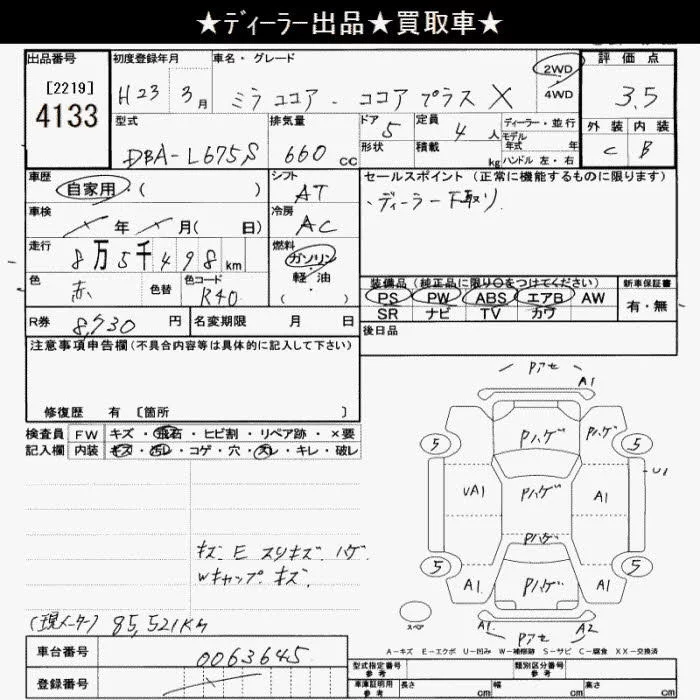 ★ディーラー出品★買取車★
出品番号 初度登録年月 車名・グレード 評価点
[2219] H23年 3月 ミラココア - ココア プラス X 2WD 3.5
4133 4WD
型式 排気量 ドア 5 定員 4人 ディーラー・並行 外装 内装
DBA-L675S 660 cc 形状 積載 kg モデル年式 年 C B
ハンドル 左・右
車歴 シフト セールスポイント(正常に機能するものに限ります)
自家用・( ) AT ・ディーラー下取り
車検 年 月( 日) 冷房 AC
走行 8万5千498km 燃料 ガソリン
軽・油
( )
色 赤 色替 色コード R40
装備品(純正品に限り○をつけてください) 新車保証書
PS PW ABS エアB AW 有・無
SR ナビ TV カワ
R券 8,730円 名変期限 月 日 後日品
注意事項申告欄(不具合内容等は具体的に記入して下さい)
修復歴 有 [箇所 ]
検査員 FW キズ・飛石・ヒビ割・リペア跡・×要
記入欄 内装 キズ・汚レ・コゲ・穴・スレ・キレ・破レ
Pアセ A1
5 Pハゲ Pハゲ 5
UA1 Pハゲ A1 U1
Pハゲ
5 A1 Pハゲ A1 5
スペア A1 Pアセ A2
キズ E スリキズ ハゲ
Wキャップ キズ
(現メーター) 85,521KM
A-キズ E-エクボ U-凹み W-補修跡 S-サビ C-腐食 XX-交換済
車台番号 0063645
型式指定番号 参考 類別区分番号 参考
登録番号 車庫証明用 参考 長さ cm 幅 cm 高さ cm